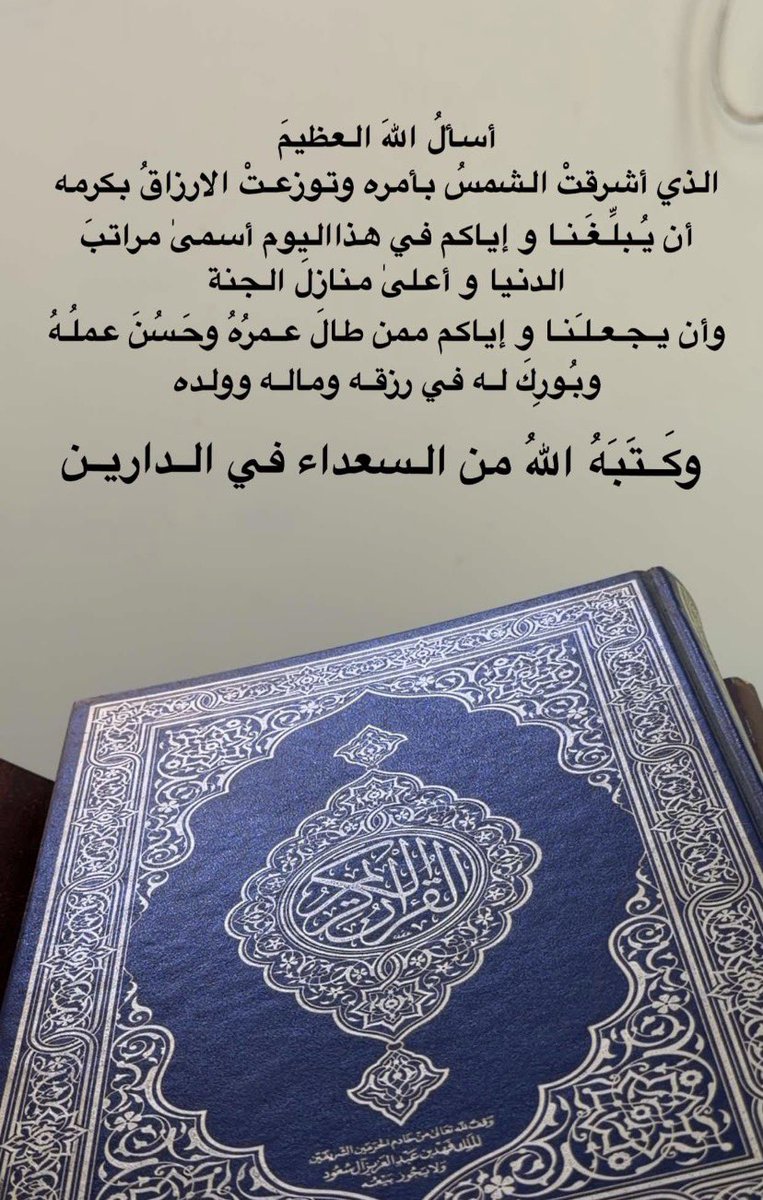 أسألُ اللهَ العظيمَ
الذي أشرقتْ الشمسُ بأمره وتوزعتْ الارزاقُ بكرمه
أن يُبلِّغَنا و إياكم في هذااليوم أسمىٰ مراتبَ
الدنيا و أعلىٰ منازلَ الجنة
وأن يجعلَنا و إياكم ممن طالَ عمرُهُ وحَسُنَ عملُهُ
وبُورِكَ له في رزقه وماله وولده
وكَتَبَهُ اللهُ من السعداء في الدارين
القرآن الكريم
وقف لله تعالى من خادم الحرمين الشريفين
الملك فهد بن عبد العزيز آل سعود
ولا يجوز بيعه